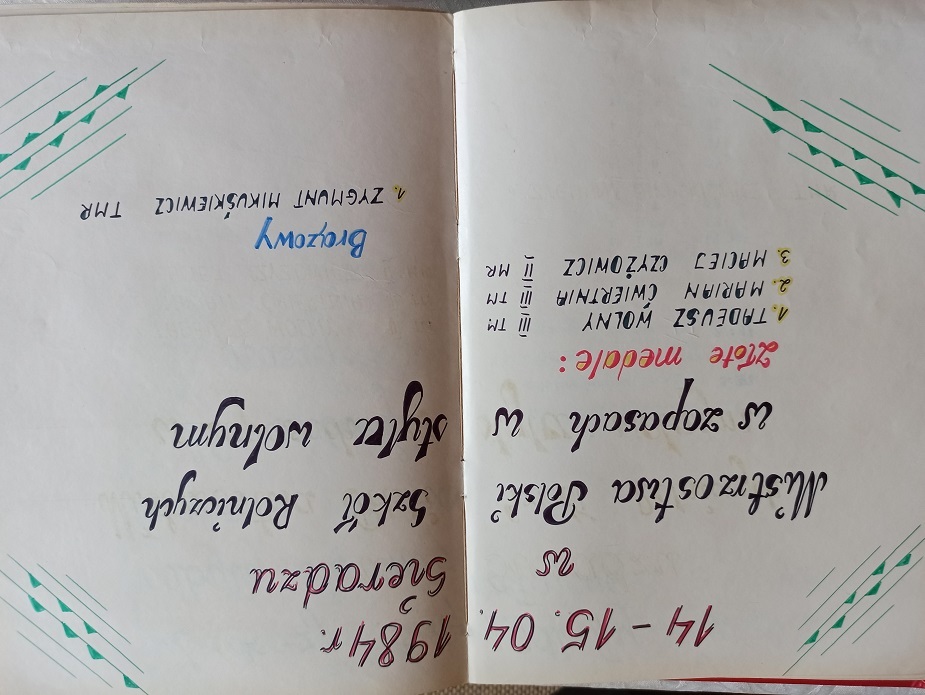 14 - 15. 04. 1984 r.
w Sieradzu
Mistrzostwa Polski Szkół Rolniczych
w zapasach w stylu wolnym
Złote medale:
1. TADEUSZ WOLNY III TM
2. MARIAN ĆWIERTNIA III TM
3. MACIEJ CZYŻOWICZ II MR
Brązowy
1. ZYGMUNT MIKUŚKIEWICZ TMR